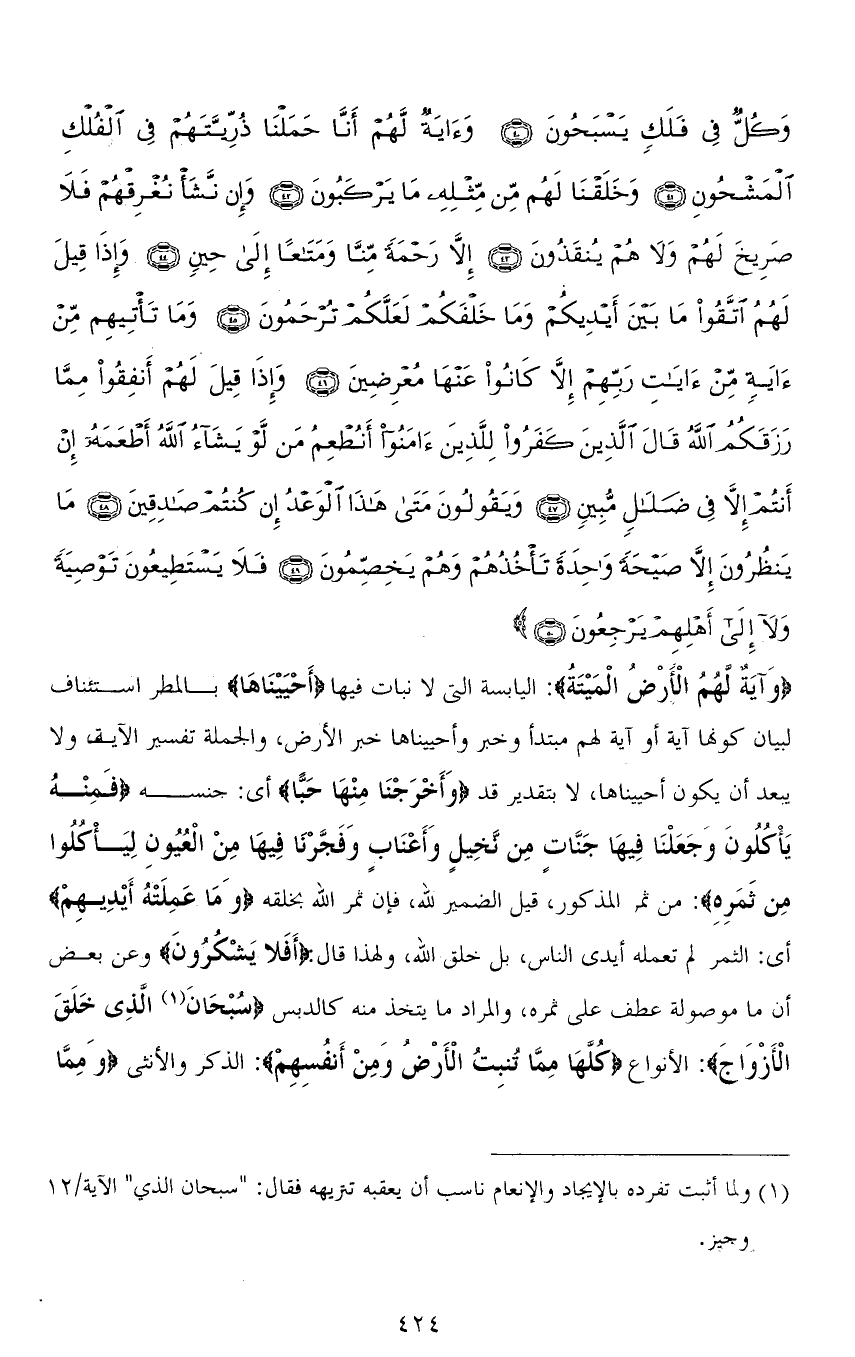 وَكُلٌّ فِى فَلَكٍ يَسْبَحُونَ ﴿٤٠﴾ وَءَايَةٌ لَّهُمْ أَنَّا حَمَلْنَا ذُرِّيَّتَهُمْ فِى ٱلْفُلْكِ
ٱلْمَشْحُونِ ﴿٤١﴾ وَخَلَقْنَا لَهُم مِّن مِّثْلِهِۦ مَا يَرْكَبُونَ ﴿٤٢﴾ وَإِن نَّشَأْ نُغْرِقْهُمْ فَلَا
صَرِيخَ لَهُمْ وَلَا هُمْ يُنقَذُونَ ﴿٤٣﴾ إِلَّا رَحْمَةً مِّنَّا وَمَتَـٰعًا إِلَىٰ حِينٍ ﴿٤٤﴾ وَإِذَا قِيلَ
لَهُمُ ٱتَّقُوا۟ مَا بَيْنَ أَيْدِيكُمْ وَمَا خَلْفَكُمْ لَعَلَّكُمْ تُرْحَمُونَ ﴿٤٥﴾ وَمَا تَأْتِيهِم مِّنْ
ءَايَةٍ مِّنْ ءَايَـٰتِ رَبِّهِمْ إِلَّا كَانُوا۟ عَنْهَا مُعْرِضِينَ ﴿٤٦﴾ وَإِذَا قِيلَ لَهُمْ أَنفِقُوا۟ مِمَّا
رَزَقَكُمُ ٱللَّهُ قَالَ ٱلَّذِينَ كَفَرُوا۟ لِلَّذِينَ ءَامَنُوٓا۟ أَنُطْعِمُ مَن لَّوْ يَشَآءُ ٱللَّهُ أَطْعَمَهُۥٓ إِنْ
أَنتُمْ إِلَّا فِى ضَلَـٰلٍ مُّبِينٍ ﴿٤٧﴾ وَيَقُولُونَ مَتَىٰ هَـٰذَا ٱلْوَعْدُ إِن كُنتُمْ صَـٰدِقِينَ ﴿٤٨﴾ مَا
يَنظُرُونَ إِلَّا صَيْحَةً وَٰحِدَةً تَأْخُذُهُمْ وَهُمْ يَخِصِّمُونَ ﴿٤٩﴾ فَلَا يَسْتَطِيعُونَ تَوْصِيَةً
وَلَآ إِلَىٰٓ أَهْلِهِمْ يَرْجِعُونَ ﴿٥٠﴾ ﴾
﴿وَآيَةٌ لَّهُمُ الْأَرْضُ الْمَيْتَةُ﴾: اليابسة التى لا نبات فيها ﴿أَحْيَيْنَاهَا﴾ بالمطر استئناف
لبيان كونها آية أو آية لهم مبتدأ وخبر وأحييناها خبر الأرض، والجملة تفسير الآية، ولا
يبعد أن يكون أحييناها، لا بتقدير قد ﴿وَأَخْرَجْنَا مِنْهَا حَبًّا﴾ أى: جنسه ﴿فَمِنْهُ
يَأْكُلُونَ وَجَعَلْنَا فِيهَا جَنَّاتٍ مِن نَّخِيلٍ وَأَعْنَابٍ وَفَجَّرْنَا فِيهَا مِنْ الْعُيُونِ لِيَأْكُلُوا
مِن ثَمَرِهِ﴾: من ثمر المذكور، قيل الضمير لله، فإن ثمر الله بخلقه ﴿وَمَا عَمِلَتْهُ أَيْدِيهِمْ﴾
أى: الثمر لم تعمله أيدى الناس، بل خلق الله، ولهذا قال:﴿أَفَلا يَشْكُرُونَ﴾ وعن بعض
أن ما موصولة عطف على ثمره، والمراد ما يتخذ منه كالدبس ﴿سُبْحَانَ(١) الَّذِى خَلَقَ
الْأَزْوَاجَ﴾: الأنواع ﴿كُلَّهَا مِمَّا تُنبِتُ الْأَرْضُ وَمِنْ أَنفُسِهِمْ﴾: الذكر والأنثى ﴿وَمِمَّا
(١) ولما أثبت تفرده بالإيجاد والإنعام ناسب أن يعقبه تنزيهه فقال: "سبحان الذي" الآية/١٢
وجيز.
٤٢٤